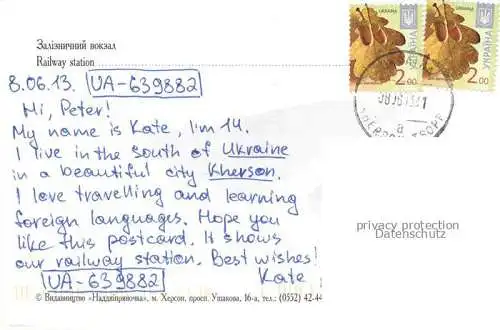 Залізничний вокзал
Railway station
УКРАЇНА
UKRAINA
2.00
УКРАЇНА
UKRAINA
2.00
8.06.13. UA-639882
Hi, Peter!
My name is Kate, I'm 14.
I live in the south of Ukraine
in a beautiful city Kherson.
I love travelling and learning
foreign languages. Hope you
like this postcard. It shows
our railway station. Best wishes!
UA-639882 Kate
privacy protection
Datenschutz
© Видавництво «Наддніпряночка», м. Херсон, просп. Ушакова, 16-а, тел.: (0552) 42-44